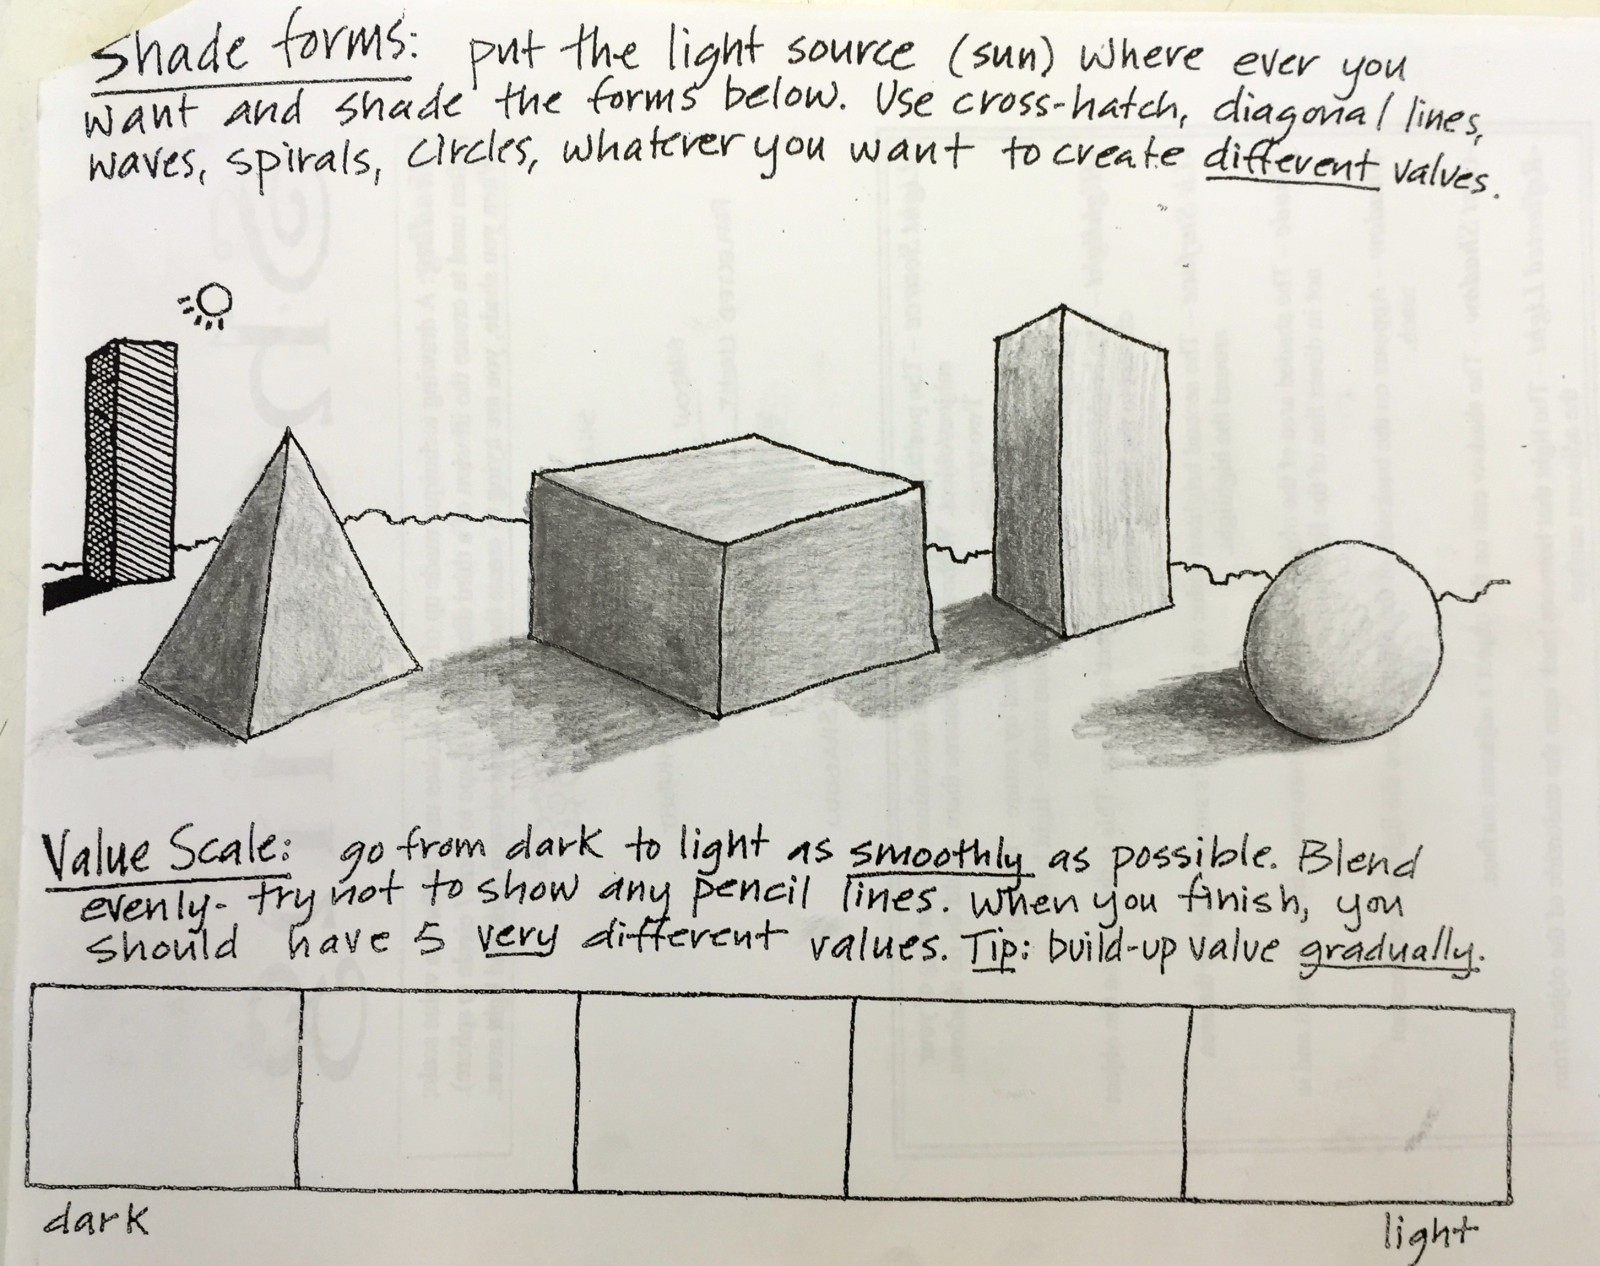 Shade forms: put the light source (sun) where ever you
want and shade the forms below. Use cross-hatch, diagonal lines,
waves, spirals, circles, whatever you want to create different values.
Value Scale: go from dark to light as smoothly as possible. Blend
evenly- try not to show any pencil lines. When you finish, you
should have 5 very different values. Tip: build-up value gradually.
dark
light